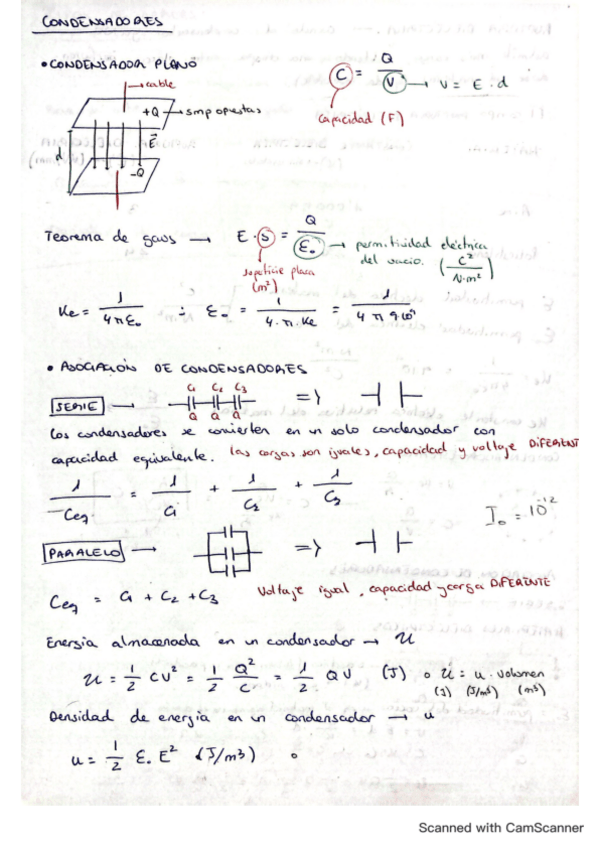 CONDENSADORES
• CONDENSADOR PLANO
cable
+Q → smp opuestas
E
d
-Q
C = Q / V → V = E · d
capacidad (F)
Teorema de gauss → E · S = Q / ε₀ → permitividad eléctrica del vacio. (C² / N·m²)
supeticie placa (m²)
Ke = 1 / 4πε₀ ; ε₀ = 1 / 4·π·Ke = 1 / 4π 9·10⁹
• ASOCIACIÓN DE CONDENSADORES
SERIE → C₁ C₂ C₃ =>
Q Q Q
Los condensadores se convierten en un solo condensador con
capacidad equivalente. las cargas son iguales, capacidad y voltaje DIFERENT
1 / Ceq = 1 / C₁ + 1 / C₂ + 1 / C₃
I₀ = 10⁻¹²
PARALELO → =>
Ceq = C₁ + C₂ + C₃ Voltaje igual, capacidad y carga DIFERENTE
Energia almacenada en un condensador → U
U = 1/2 CV² = 1/2 Q²/C = 1/2 QV (J) o U = u · volumen
(J) (J/m³) (m³)
Densidad de energia en un condensador → u
u = 1/2 ε₀ E² (J/m³)
Scanned with CamScanner